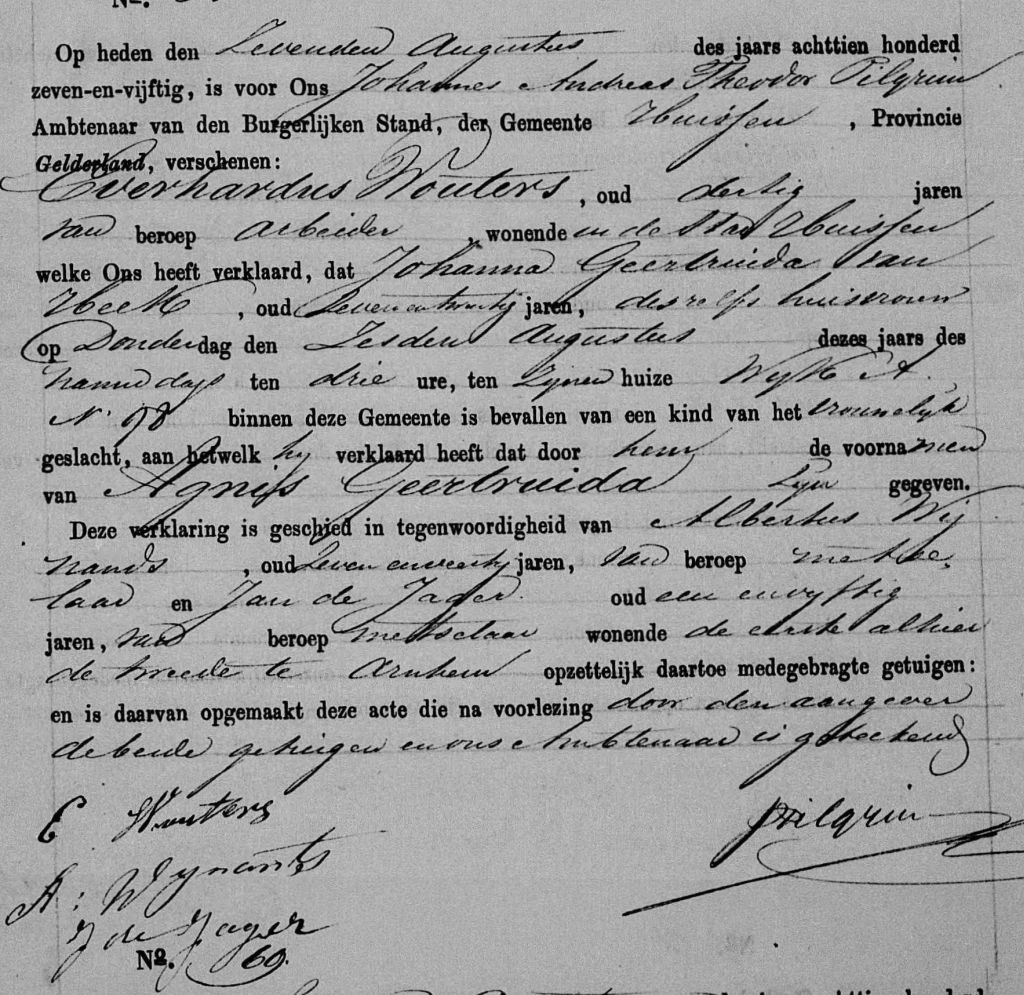 No.
Op heden den Zevenden Augustus des jaars achttien honderd
zeven-en-vijftig, is voor Ons Johannes Andreas Theodor Pilgrim
Ambtenaar van den Burgerlijken Stand, der Gemeente Huissen, Provincie
Gelderland, verschenen:
Everhardus Wouters, oud dertig jaren
van beroep arbeider, wonende in de Stad Huissen
welke Ons heeft verklaard, dat Johanna Geertruida van
, oud zevenentwintig jaren, deszelfs huisvrouw
op Donderdag den Zesden Augustus dezes jaars des
namiddags ten drie ure, ten zijnen huize Wyk A.
N. 98 binnen deze Gemeente is bevallen van een kind van het vrouwelijk
geslacht, aan hetwelk hy verklaard heeft dat door hem de voornamen
van Agnis Geertruida zyn gegeven.
Deze verklaring is geschied in tegenwoordigheid van Albertus Wij
nands, oud jaren, van beroep metse
laar en Jan de Jager oud een en vyftig
jaren, van beroep metselaar wonende de eerste alhier
de tweede te Arnhem opzettelijk daartoe medegebragte getuigen:
en is daarvan opgemaakt deze acte die na voorlezing door den aangever
de beide getuigen en ons Ambtenaar is geteekend
E Wouters
Pilgrim
A: Wynants
J de Jager
No. 69.